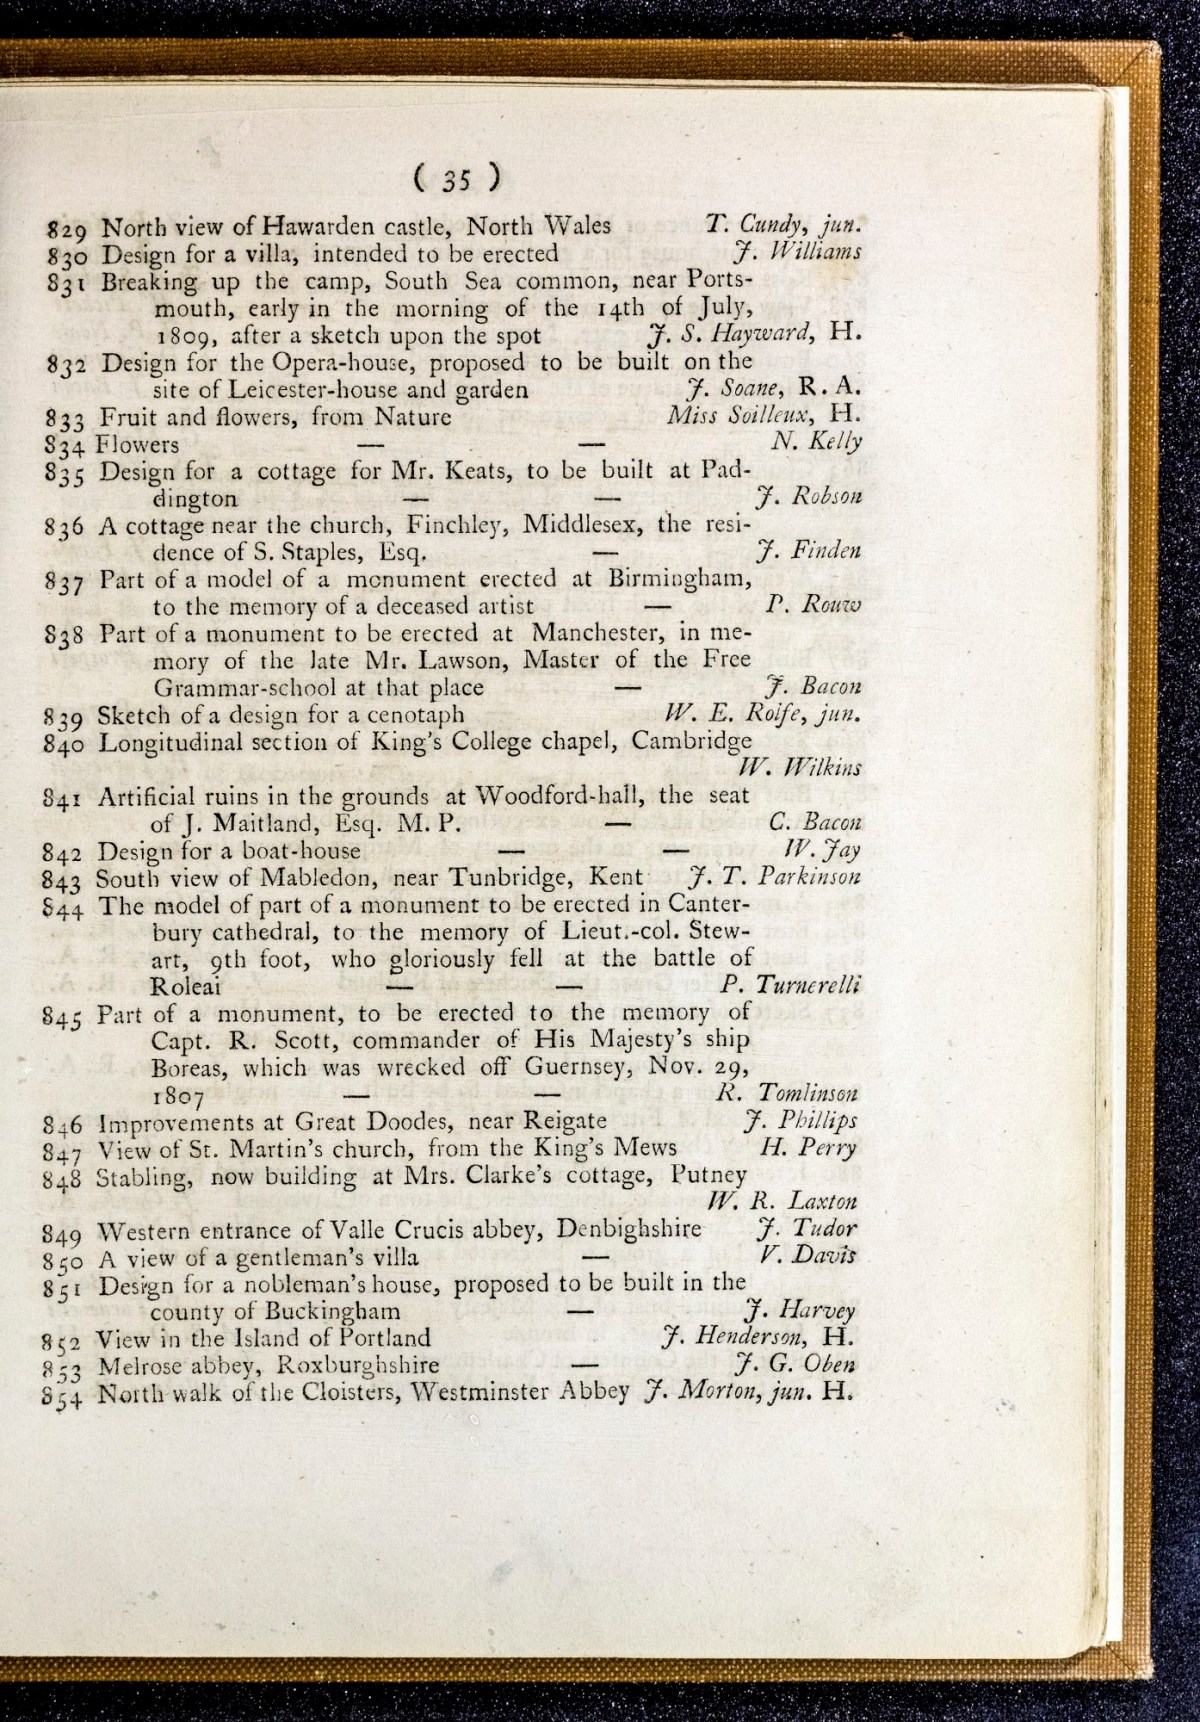 ( 35 )
829 North view of Hawarden castle, North Wales T. Cundy, jun.
830 Design for a villa, intended to be erected J. Williams
831 Breaking up the camp, South Sea common, near Ports-
mouth, early in the morning of the 14th of July,
1809, after a sketch upon the spot J. S. Hayward, H.
832 Design for the Opera-house, proposed to be built on the
site of Leicester-house and garden J. Soane, R. A.
833 Fruit and flowers, from Nature Miss Soilleux, H.
834 Flowers — — N. Kelly
835 Design for a cottage for Mr. Keats, to be built at Pad-
dington — — J. Robson
836 A cottage near the church, Finchley, Middlesex, the resi-
dence of S. Staples, Esq. — J. Finden
837 Part of a model of a monument erected at Birmingham,
to the memory of a deceased artist — P. Rouw
838 Part of a monument to be erected at Manchester, in me-
mory of the late Mr. Lawson, Master of the Free
Grammar-school at that place — J. Bacon
839 Sketch of a design for a cenotaph W. E. Rolfe, jun.
840 Longitudinal section of King's College chapel, Cambridge
W. Wilkins
841 Artificial ruins in the grounds at Woodford-hall, the seat
of J. Maitland, Esq. M. P. — C. Bacon
842 Design for a boat-house — — W. Jay
843 South view of Mabledon, near Tunbridge, Kent J. T. Parkinson
844 The model of part of a monument to be erected in Canter-
bury cathedral, to the memory of Lieut.-col. Stew-
art, 9th foot, who gloriously fell at the battle of
Roleai — — P. Turnerelli
845 Part of a monument, to be erected to the memory of
Capt. R. Scott, commander of His Majesty's ship
Boreas, which was wrecked off Guernsey, Nov. 29,
1807 — — R. Tomlinson
846 Improvements at Great Doodes, near Reigate J. Phillips
847 View of St. Martin's church, from the King's Mews H. Perry
848 Stabling, now building at Mrs. Clarke's cottage, Putney
W. R. Laxton
849 Western entrance of Valle Crucis abbey, Denbighshire J. Tudor
850 A view of a gentleman's villa — V. Davis
851 Design for a nobleman's house, proposed to be built in the
county of Buckingham — J. Harvey
852 View in the Island of Portland J. Henderson, H.
853 Melrose abbey, Roxburghshire — J. G. Oben
854 North walk of the Cloisters, Westminster Abbey J. Morton, jun. H.